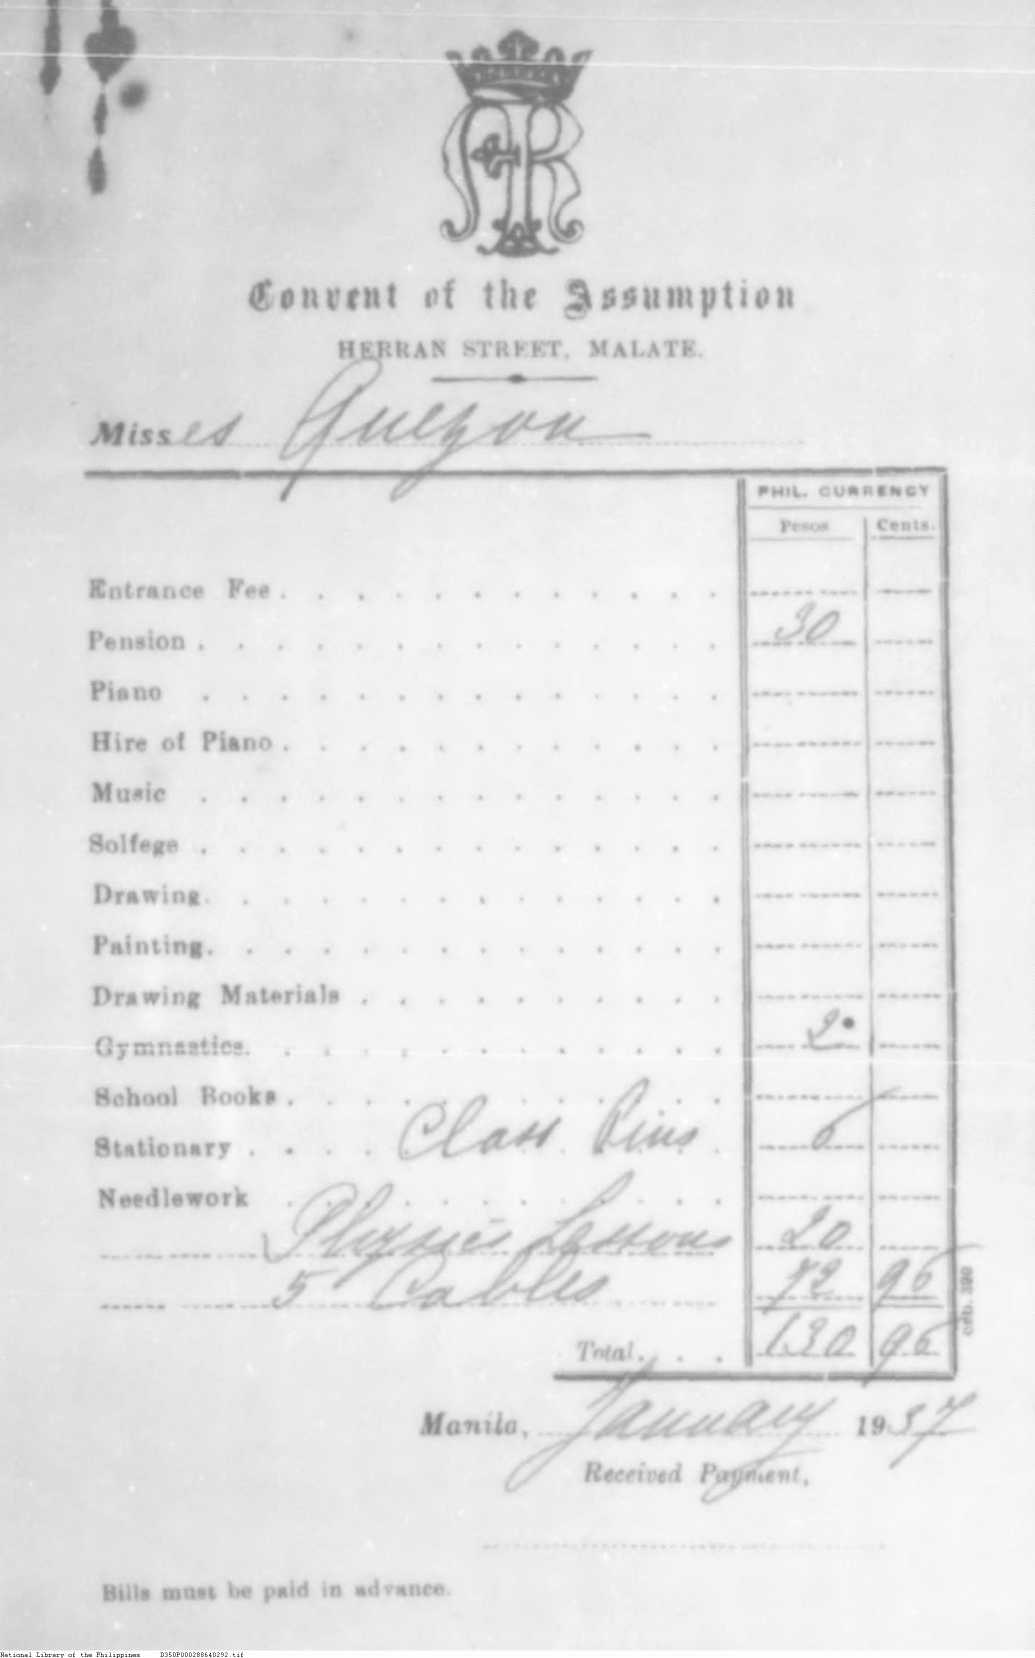 AR
Convent of the Assumption
HERRAN STREET, MALATE.
Misses Quezon
PHIL. CURRENCY
Pesos Cents.
Entrance Fee
Pension 30
Piano
Hire of Piano
Music
Solfege
Drawing
Painting
Drawing Materials
Gymnastics. 2
School Books
Stationary Class Pins 6
Needlework
Physics Lessons 20
5 Cables 72 96
Total 130 96
Manila, January 1937
Received Payment,
Bills must be paid in advance.
National Library of the Philippines D350P00028864D292.tif